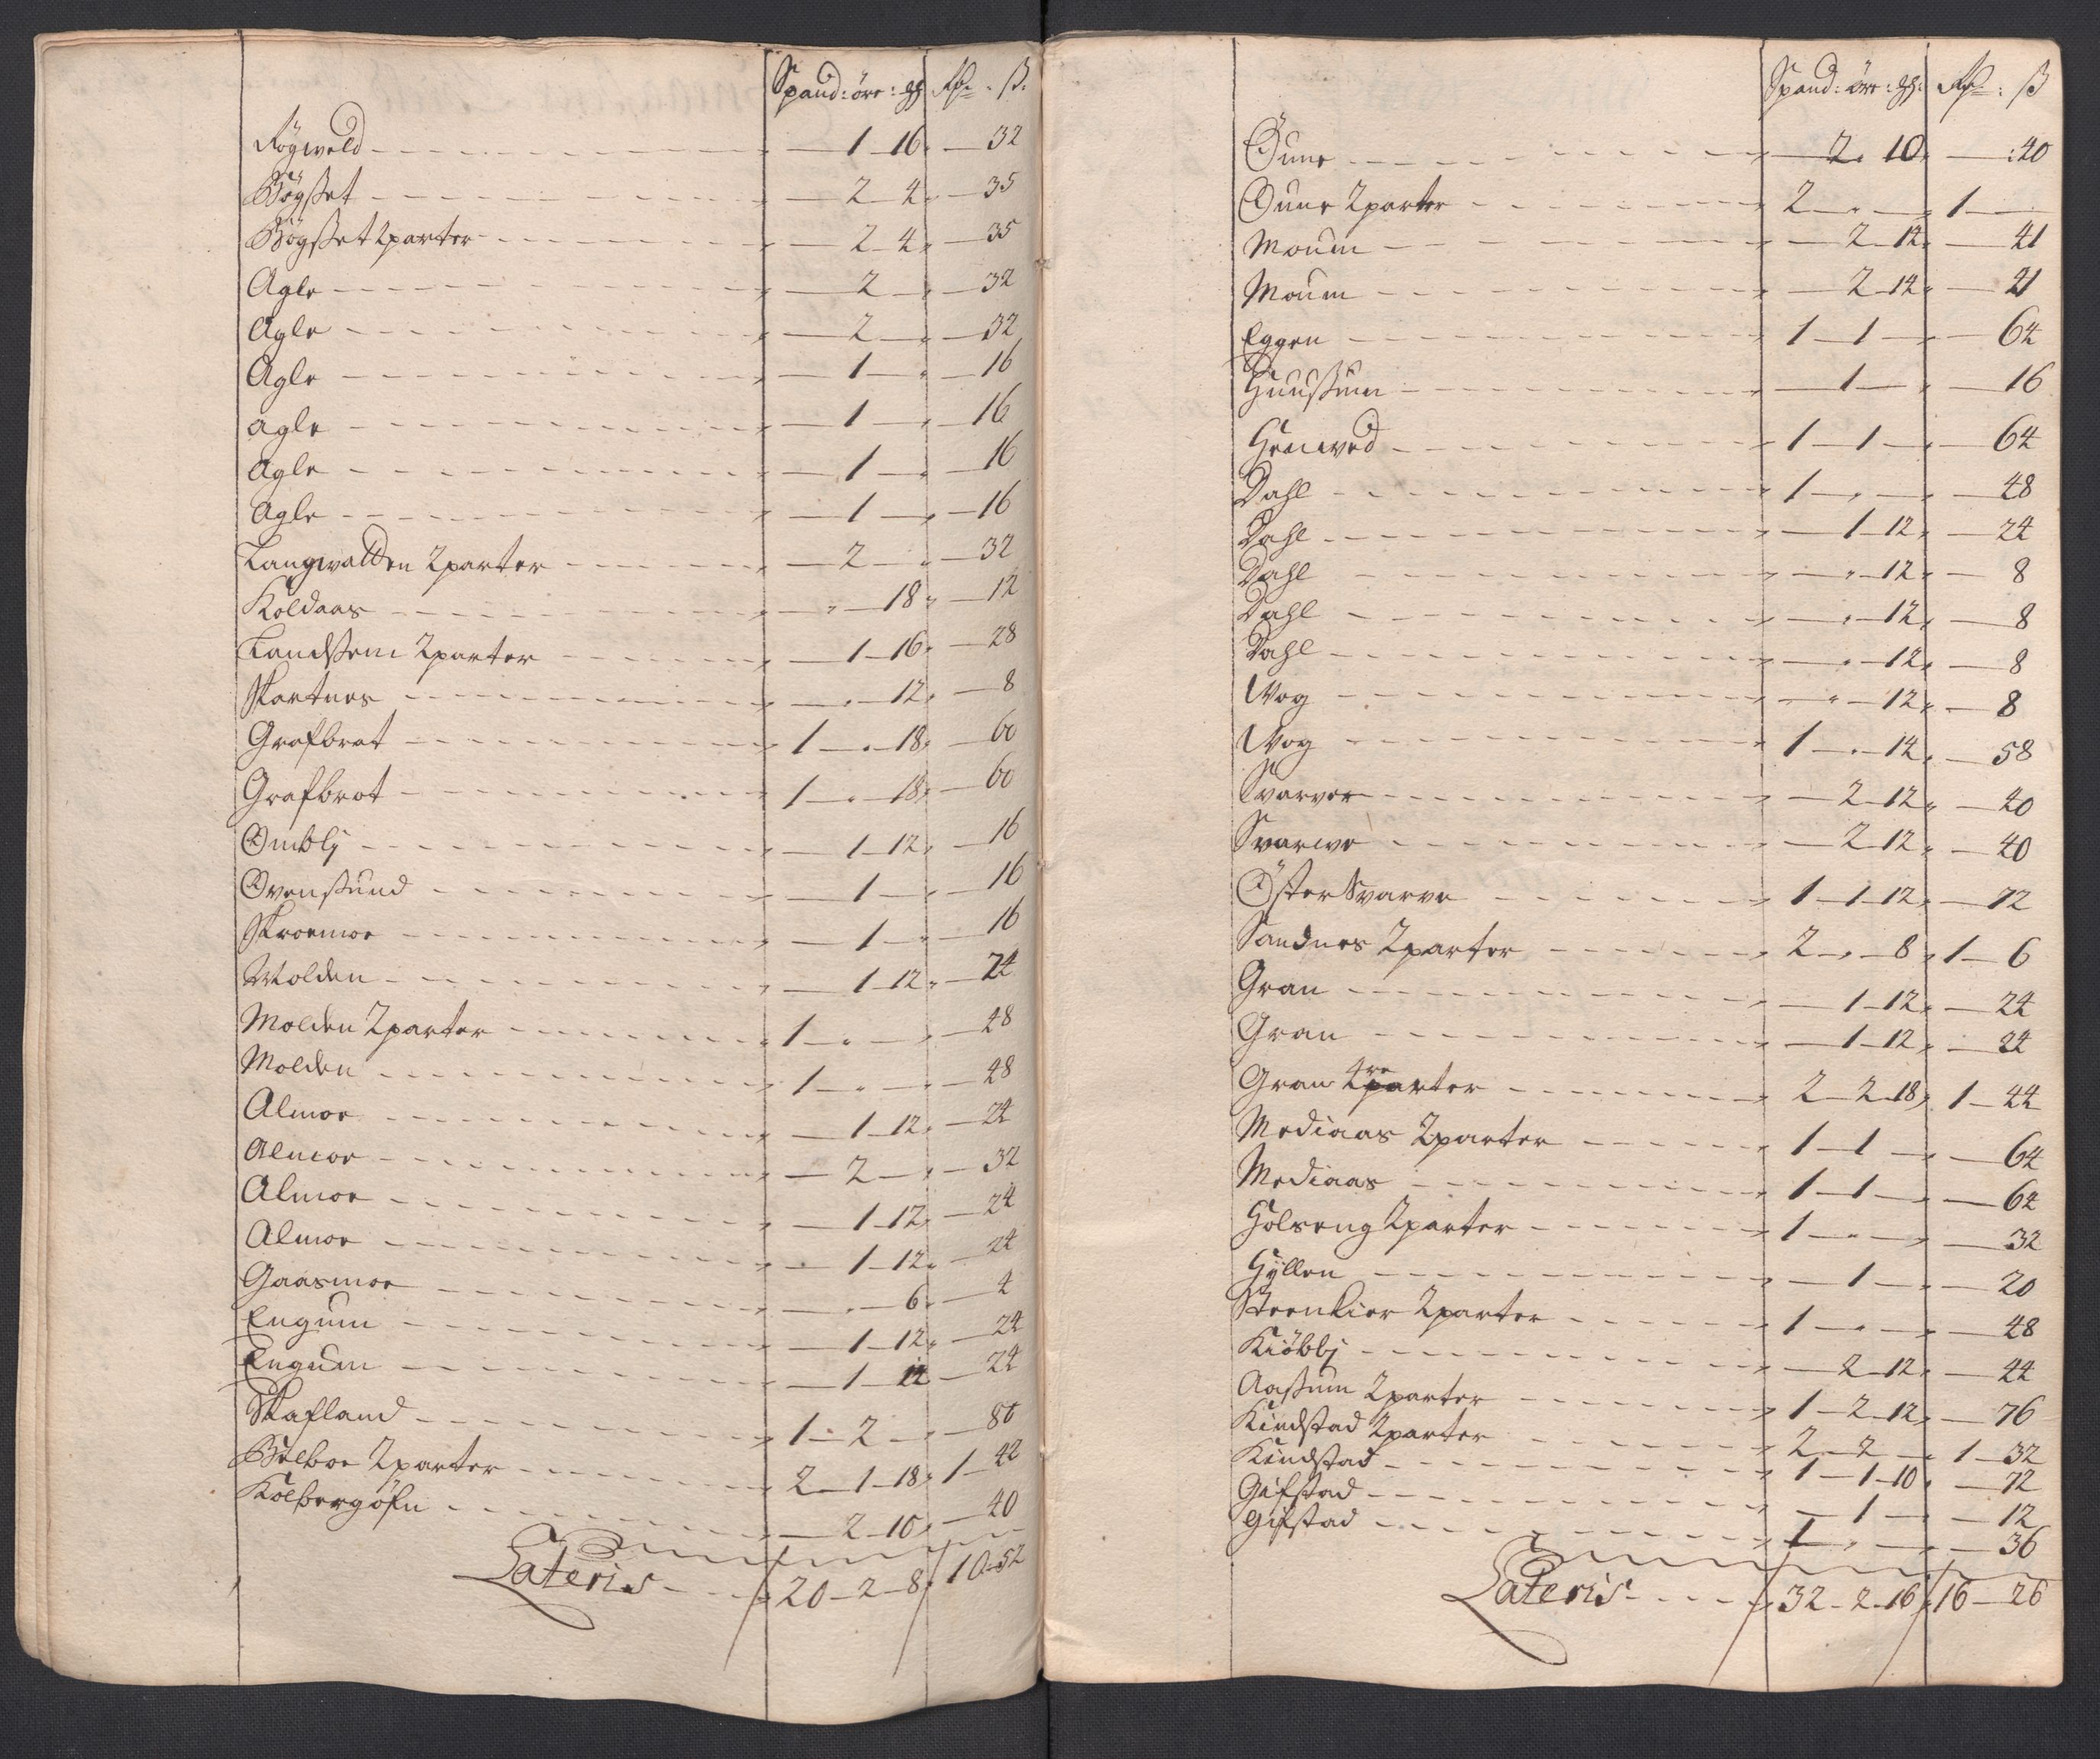 Spand: öre: ꝸ Rd: ß:
Rögweld 1 16 32
Bögßet 2 4 35
Bögßet 2parter 2 4 35
Agle 2 32
Agle 2 32
Agle 1 16
agle 1 16
Agle 1 16
Agle 1 16
Langwalden 2parter 2 32
Koldaas 18 12
Landßem 2parter 1 16 28
Skartnes 12 8
Grafbrot 1 18 60
Grafbrot 1 18 60
Ombly 1 12 16
Ovensund 1 16
Skroemoe 1 16
Molden 1 12 24
Molden 2parter 1 48
Molden 1 48
Almoe 1 12 24
Almoe 2 32
Almoe 1 12 24
Almoe 1 12 24
Gaasmoe 6 4
Engum 1 12 24
Engum 1 12 24
Skafland 1 2 80
Bilboe 2parter 2 1 18 1 42
Kolbergöfn 2 10 40
Lateris 20 2 8 10 52
Spand: öre: ꝸ: Rd: ß
Öune 2 10 40
Oune 2parter 2 1
Moum 2 14 41
Moum 2 14 41
Eggen 1 1 64
Huußum 1 16
Henwed 1 1 64
Dahl 1 48
Dahl 1 12 24
Dahl 12 8
Dahl 12 8
Dahl 12 8
Wog 12 8
Wog 1 14 58
Svarver 2 12 40
Svarwe 2 12 40
Öster Svarve 1 1 12 72
Sandnes 2parter 2 8 1 6
Gran 1 12 24
Gran 1 12 24
Gran 4re parter 2 2 18 1 44
Mediaas 2parter 1 1 64
Mediaas 1 1 64
Holseng 2parter 1 32
Hyllen 1 20
Steenkier 2parter 1 48
Kiöbbj 2 12 44
Aaßum 2parter 1 2 12 76
Kindstad 2parter 2 2 1 32
Kindstad 1 1 10 72
Gifstad 1 12
Gifstad 1 36
Lateris 32 2 16 16 26